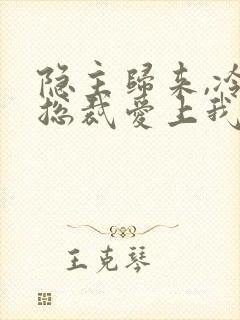 隐主歸来,冷
总裁爱上我
王克琴